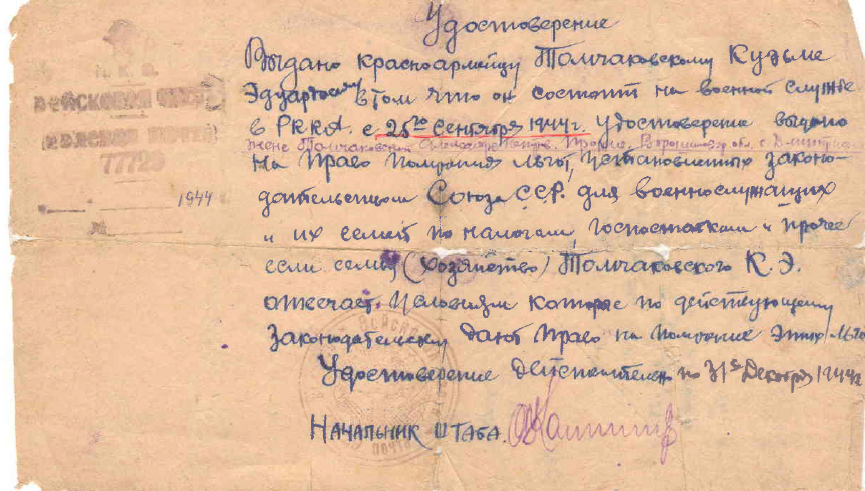 Удостоверение
Н. К. О.
ВОЙСКОВАЯ ЧАСТЬ
ПОЛЕВАЯ ПОЧТА
77729
1944
Выдано красноармейцу Толчаковскому Кузьме
Эдуардовичу в том что он состоит на военной службе
в РККА. с 25го Сентября 1944г. Удостоверение выдано
жене Толчаковской прожив. Ворошиловгр. обл. с.
на право получения льгот, установленных законо-
дательством Союза ССР. для военнослужащих
и их семей по налогам, госпоставкам и прочее
если семья (хозяйство) Толчаковского К. Э.
отвечает условиям которые по действующему
законодательству дают право на получение этих льгот
Удостоверение действительно по 31е Декабря 1944г
Начальник штаба.